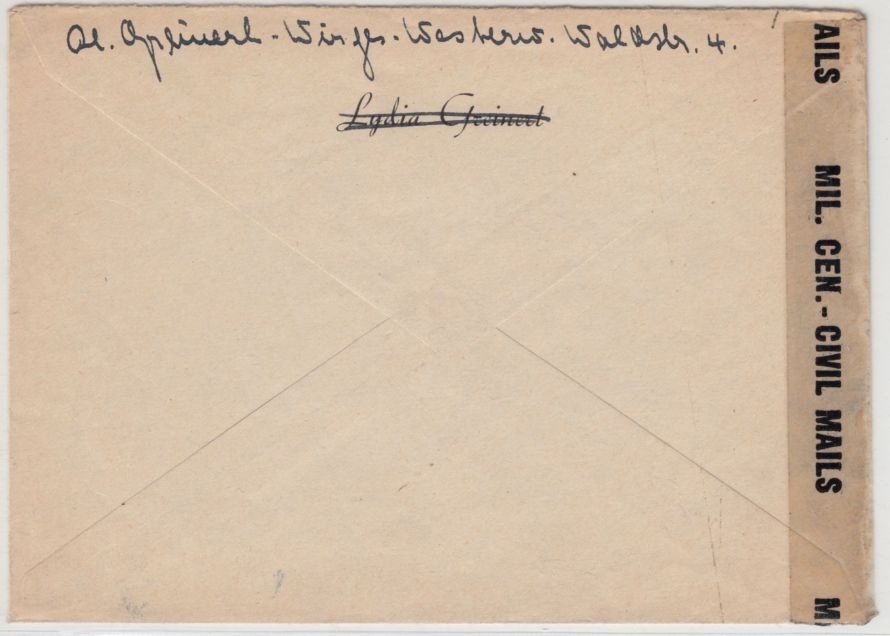 Wirges. Westerw. Waldstr. 4.
Lydia Greinert
AILS
MIL. CEN.-CIVIL MAILS
M